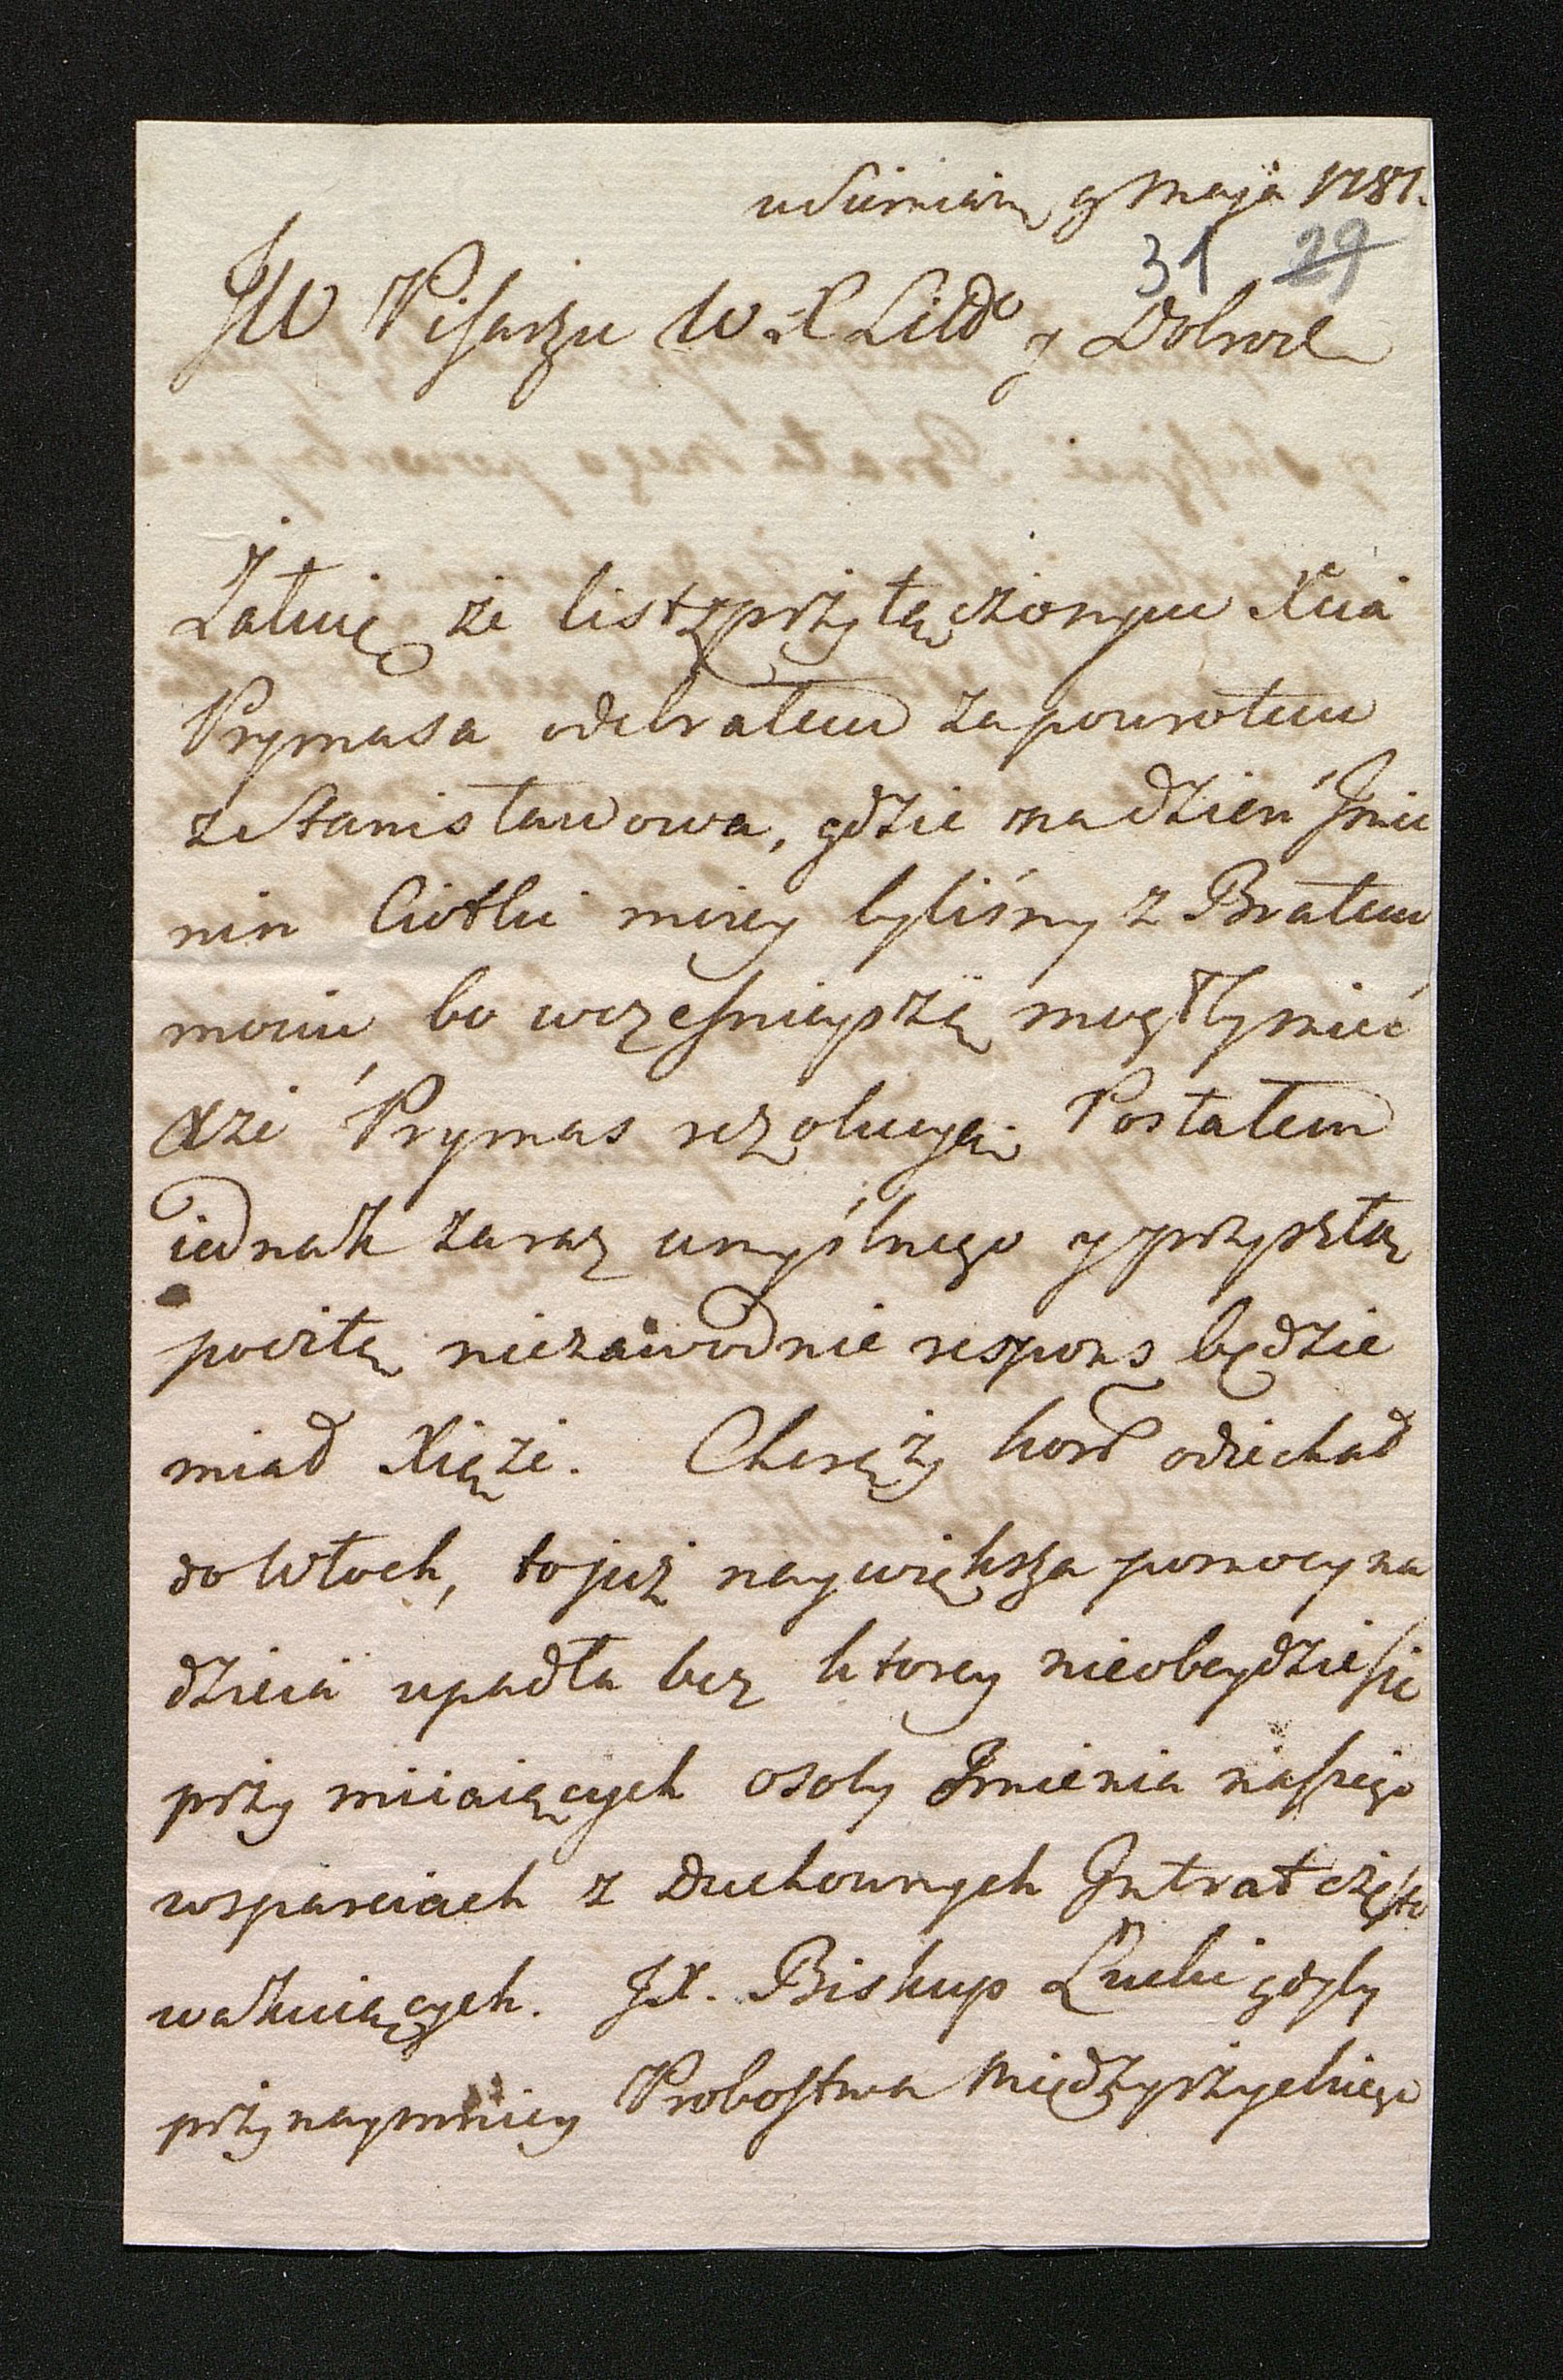 9 Maja 1787.
31 29
JW Pisarzu W. X Litt° y Dobrod
Żałuię że list z przyłączonym Xcia
Prymasa odebrałem za powrotem
z Stanisławowa, gdzie na dzień Jmie
nin Ciotki moiey byliśmy z Bratem
moim, bo wcześnieyszą mogłby mieć
Xże Prymas rezolucyą. Posłałem
iednak zaraz umyślnego y przyszłą
pocztą niezawodnie respons będzie
miał Xiąże. Chorąży kor̃ odiechał
do Włoch, to już naywiększa pomocy na
dzieia upadła bez ktorey nieobeydzie się
przy miiaiących osoby Jmienia naszego
wsparciach z Duchownych Jntrat często
wakuiących. JX. Biskup Łucki gdyby
przynaymniey Probostwa Międzyrzyckiego